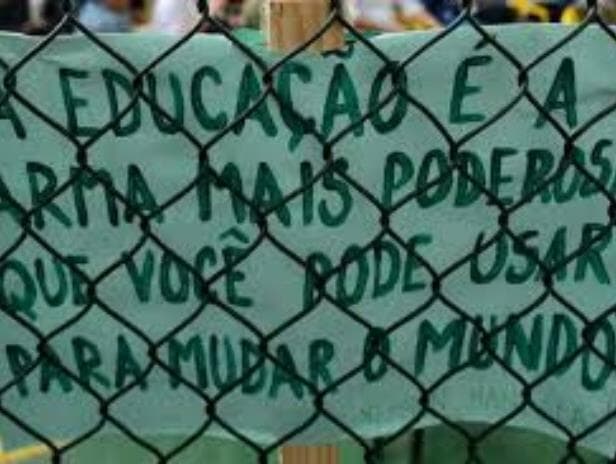 A EDUCAÇÃO É A
ARMA MAIS PODEROSA
QUE VOCÊ PODE USAR
PARA MUDAR O MUNDO